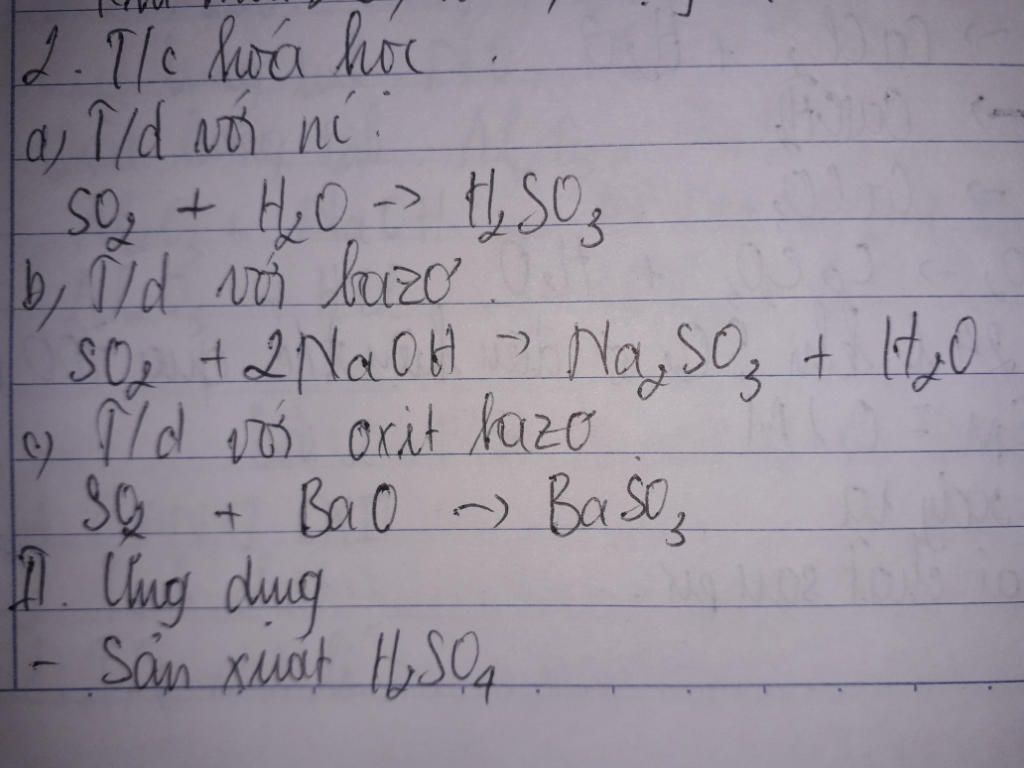 2. T/c hoá học.
a, T/d với nc
SO₂ + H₂O → H₂SO₃
b, T/d với bazơ.
SO₂ + 2NaOH → Na₂SO₃ + H₂O
c) T/d với oxit bazơ
SO₂ + BaO → BaSO₃
II. Ứng dụng
- Sản xuất H₂SO₄